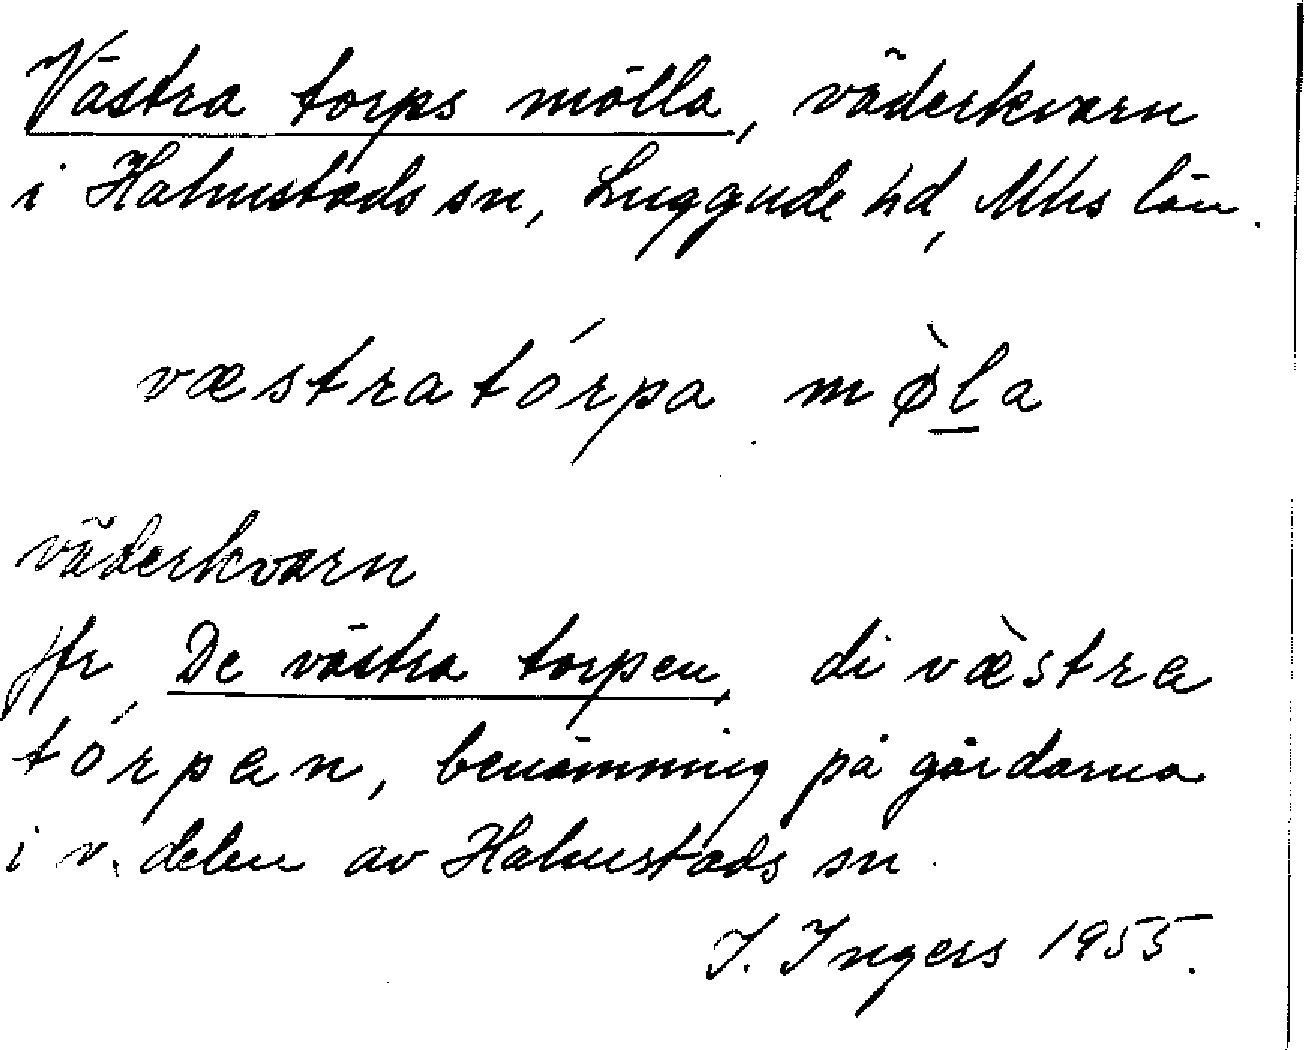 Västra torps mölla, väderkvarn
i Halmstads sn, Luggude hd, Mhs län.
væstratórpa mø̀la
väderkvarn
Jfr De västra torpen, di væ̀stra
tórpan, benämning på gårdarna
i v. delen av Halmstads sn.
I. Ingers 1955.